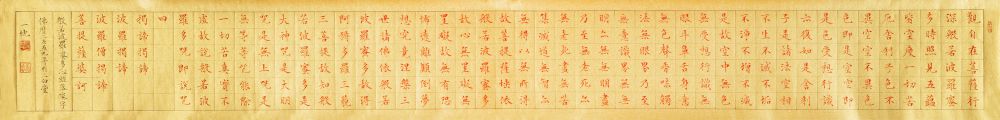 觀自在菩薩行
深般若波羅蜜
多時照見五蘊
皆空度一切苦
厄舍利子色不
異空空不異色
色即是空空即
是色受想行識
亦復如是舍利
子是諸法空相
不生不滅不垢
不淨不增不減
是故空中無色
無受想行識無
眼耳鼻舌身意
無色聲香味觸
法無眼界乃至
無意識界無無
明亦無無明盡
乃至無老死亦
無老死盡無苦
集滅道無智亦
無得以無所得
故菩提薩埵依
般若波羅蜜多
故心無罣礙無
罣礙故無有恐
怖遠離顛倒夢
想究竟涅槃三
世諸佛依般若
波羅蜜多故得
阿耨多羅三藐
三菩提故知般
若波羅蜜多是
大神咒是大明
咒是無上咒是
無等等咒能除
一切苦真實不
虛故說般若波
羅蜜多咒即說咒
曰
揭諦揭諦
波羅揭諦
波羅僧揭諦
菩提薩婆訶
般若波羅蜜多心經
佛曆二五五九年